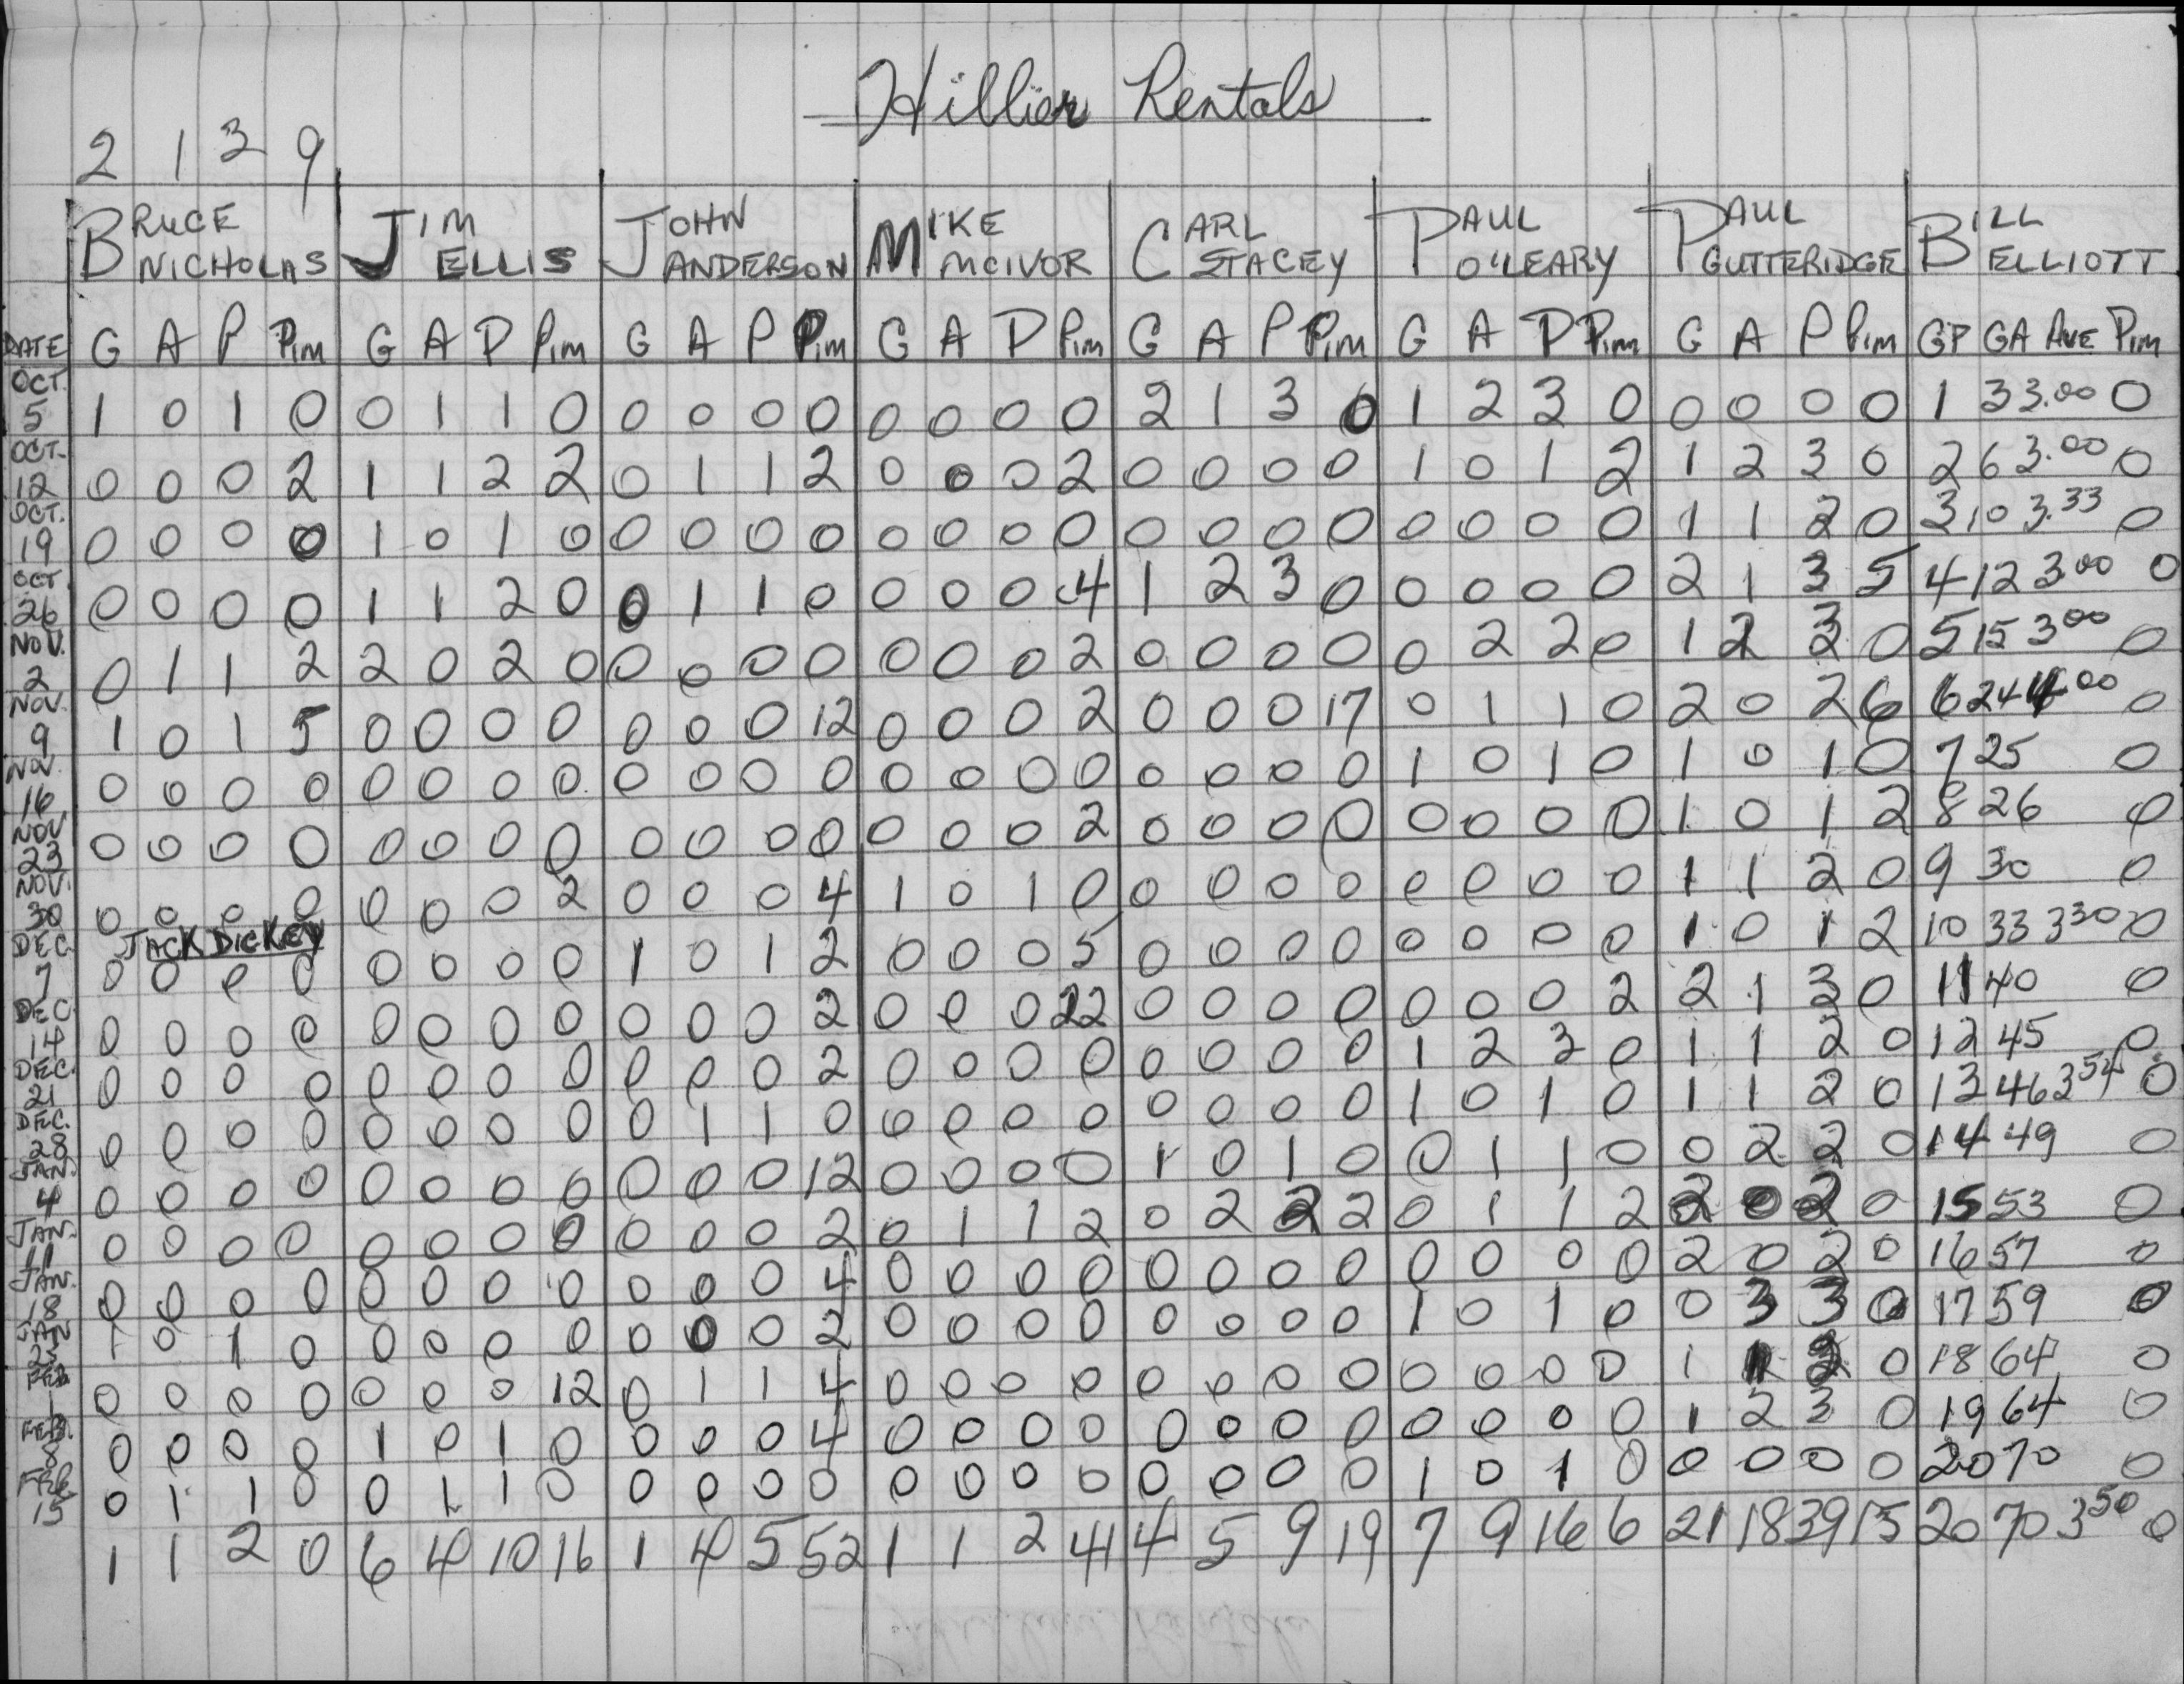 Hillier Rentals
2 1 3 9
BRUCE NICHOLAS JIM ELLIS JOHN ANDERSON MIKE MCIVOR CARL STACEY PAUL O'LEARY PAUL GUTTERIDGE BILL ELLIOTT
DATE G A P Pim G A P Pim G A P Pim G A P Pim G A P Pim G A P Pim G A P Pim GP GA AVE Pim
OCT. 5 1 0 1 0 0 1 1 0 0 0 0 0 0 0 0 0 2 1 3 0 1 2 3 0 0 0 0 0 1 3 3.00 0
OCT. 12 0 0 0 2 1 1 2 2 0 1 1 2 0 0 0 2 0 0 0 0 1 0 1 2 1 2 3 0 2 6 3.00 0
OCT. 19 0 0 0 0 1 0 1 0 0 0 0 0 0 0 0 0 0 0 0 0 0 0 0 0 1 1 2 0 3 10 3.33 0
OCT. 26 0 0 0 0 1 1 2 0 0 1 1 0 0 0 0 4 1 2 3 0 0 0 0 0 2 1 3 5 4 12 3.00 0
NOV. 2 0 1 1 2 2 0 2 0 0 0 0 0 0 0 0 2 0 0 0 0 0 2 2 0 1 2 3 0 5 15 3.00 0
NOV. 9 1 0 1 5 0 0 0 0 0 0 0 12 0 0 0 2 0 0 0 17 0 1 1 0 2 0 2 6 6 24 4.00 0
NOV. 16 0 0 0 0 0 0 0 0 0 0 0 0 0 0 0 0 0 0 0 0 1 0 1 0 1 0 1 0 7 25 0
NOV 23 0 0 0 0 0 0 0 0 0 0 0 0 0 0 0 2 0 0 0 0 0 0 0 0 1 0 1 2 8 26 0
NOV. 30 0 0 0 0 0 0 0 2 0 0 0 4 1 0 1 0 0 0 0 0 0 0 0 0 1 1 2 0 9 30 0
JACK DICKEY
DEC. 7 0 0 0 0 0 0 0 0 1 0 1 2 0 0 0 5 0 0 0 0 0 0 0 0 1 0 1 2 10 33 3.30 0
DEC. 14 0 0 0 0 0 0 0 0 0 0 0 2 0 0 0 22 0 0 0 0 0 0 0 2 2 1 3 0 11 40 0
DEC. 21 0 0 0 0 0 0 0 0 0 0 0 2 0 0 0 0 0 0 0 0 1 2 3 0 1 1 2 0 12 45 0
DEC. 28 0 0 0 0 0 0 0 0 0 1 1 0 0 0 0 0 0 0 0 0 1 0 1 0 1 1 2 0 13 46 3.54 0
JAN. 4 0 0 0 0 0 0 0 0 0 0 0 12 0 0 0 0 1 0 1 0 0 1 1 0 0 2 2 0 14 49 0
JAN. 11 0 0 0 0 0 0 0 0 0 0 0 2 0 1 1 2 0 2 2 2 0 1 1 2 2 0 2 0 15 53 0
JAN. 18 0 0 0 0 0 0 0 0 0 0 0 4 0 0 0 0 0 0 0 0 0 0 0 0 2 0 2 0 16 57 0
JAN 25 1 0 1 0 0 0 0 0 0 0 0 2 0 0 0 0 0 0 0 0 1 0 1 0 0 3 3 0 17 59 0
FEB 1 0 0 0 0 0 0 0 12 0 1 1 4 0 0 0 0 0 0 0 0 0 0 0 0 1 1 2 0 18 64 0
FEB. 8 0 0 0 0 1 0 1 0 0 0 0 4 0 0 0 0 0 0 0 0 0 0 0 0 1 2 3 0 19 64 0
Feb 15 0 1 1 0 0 1 1 0 0 0 0 0 0 0 0 0 0 0 0 0 1 0 1 0 0 0 0 0 20 70 0
1 1 2 0 6 4 10 16 1 4 5 52 1 1 2 41 4 5 9 19 7 9 16 6 21 18 39 15 20 70 3.50 0